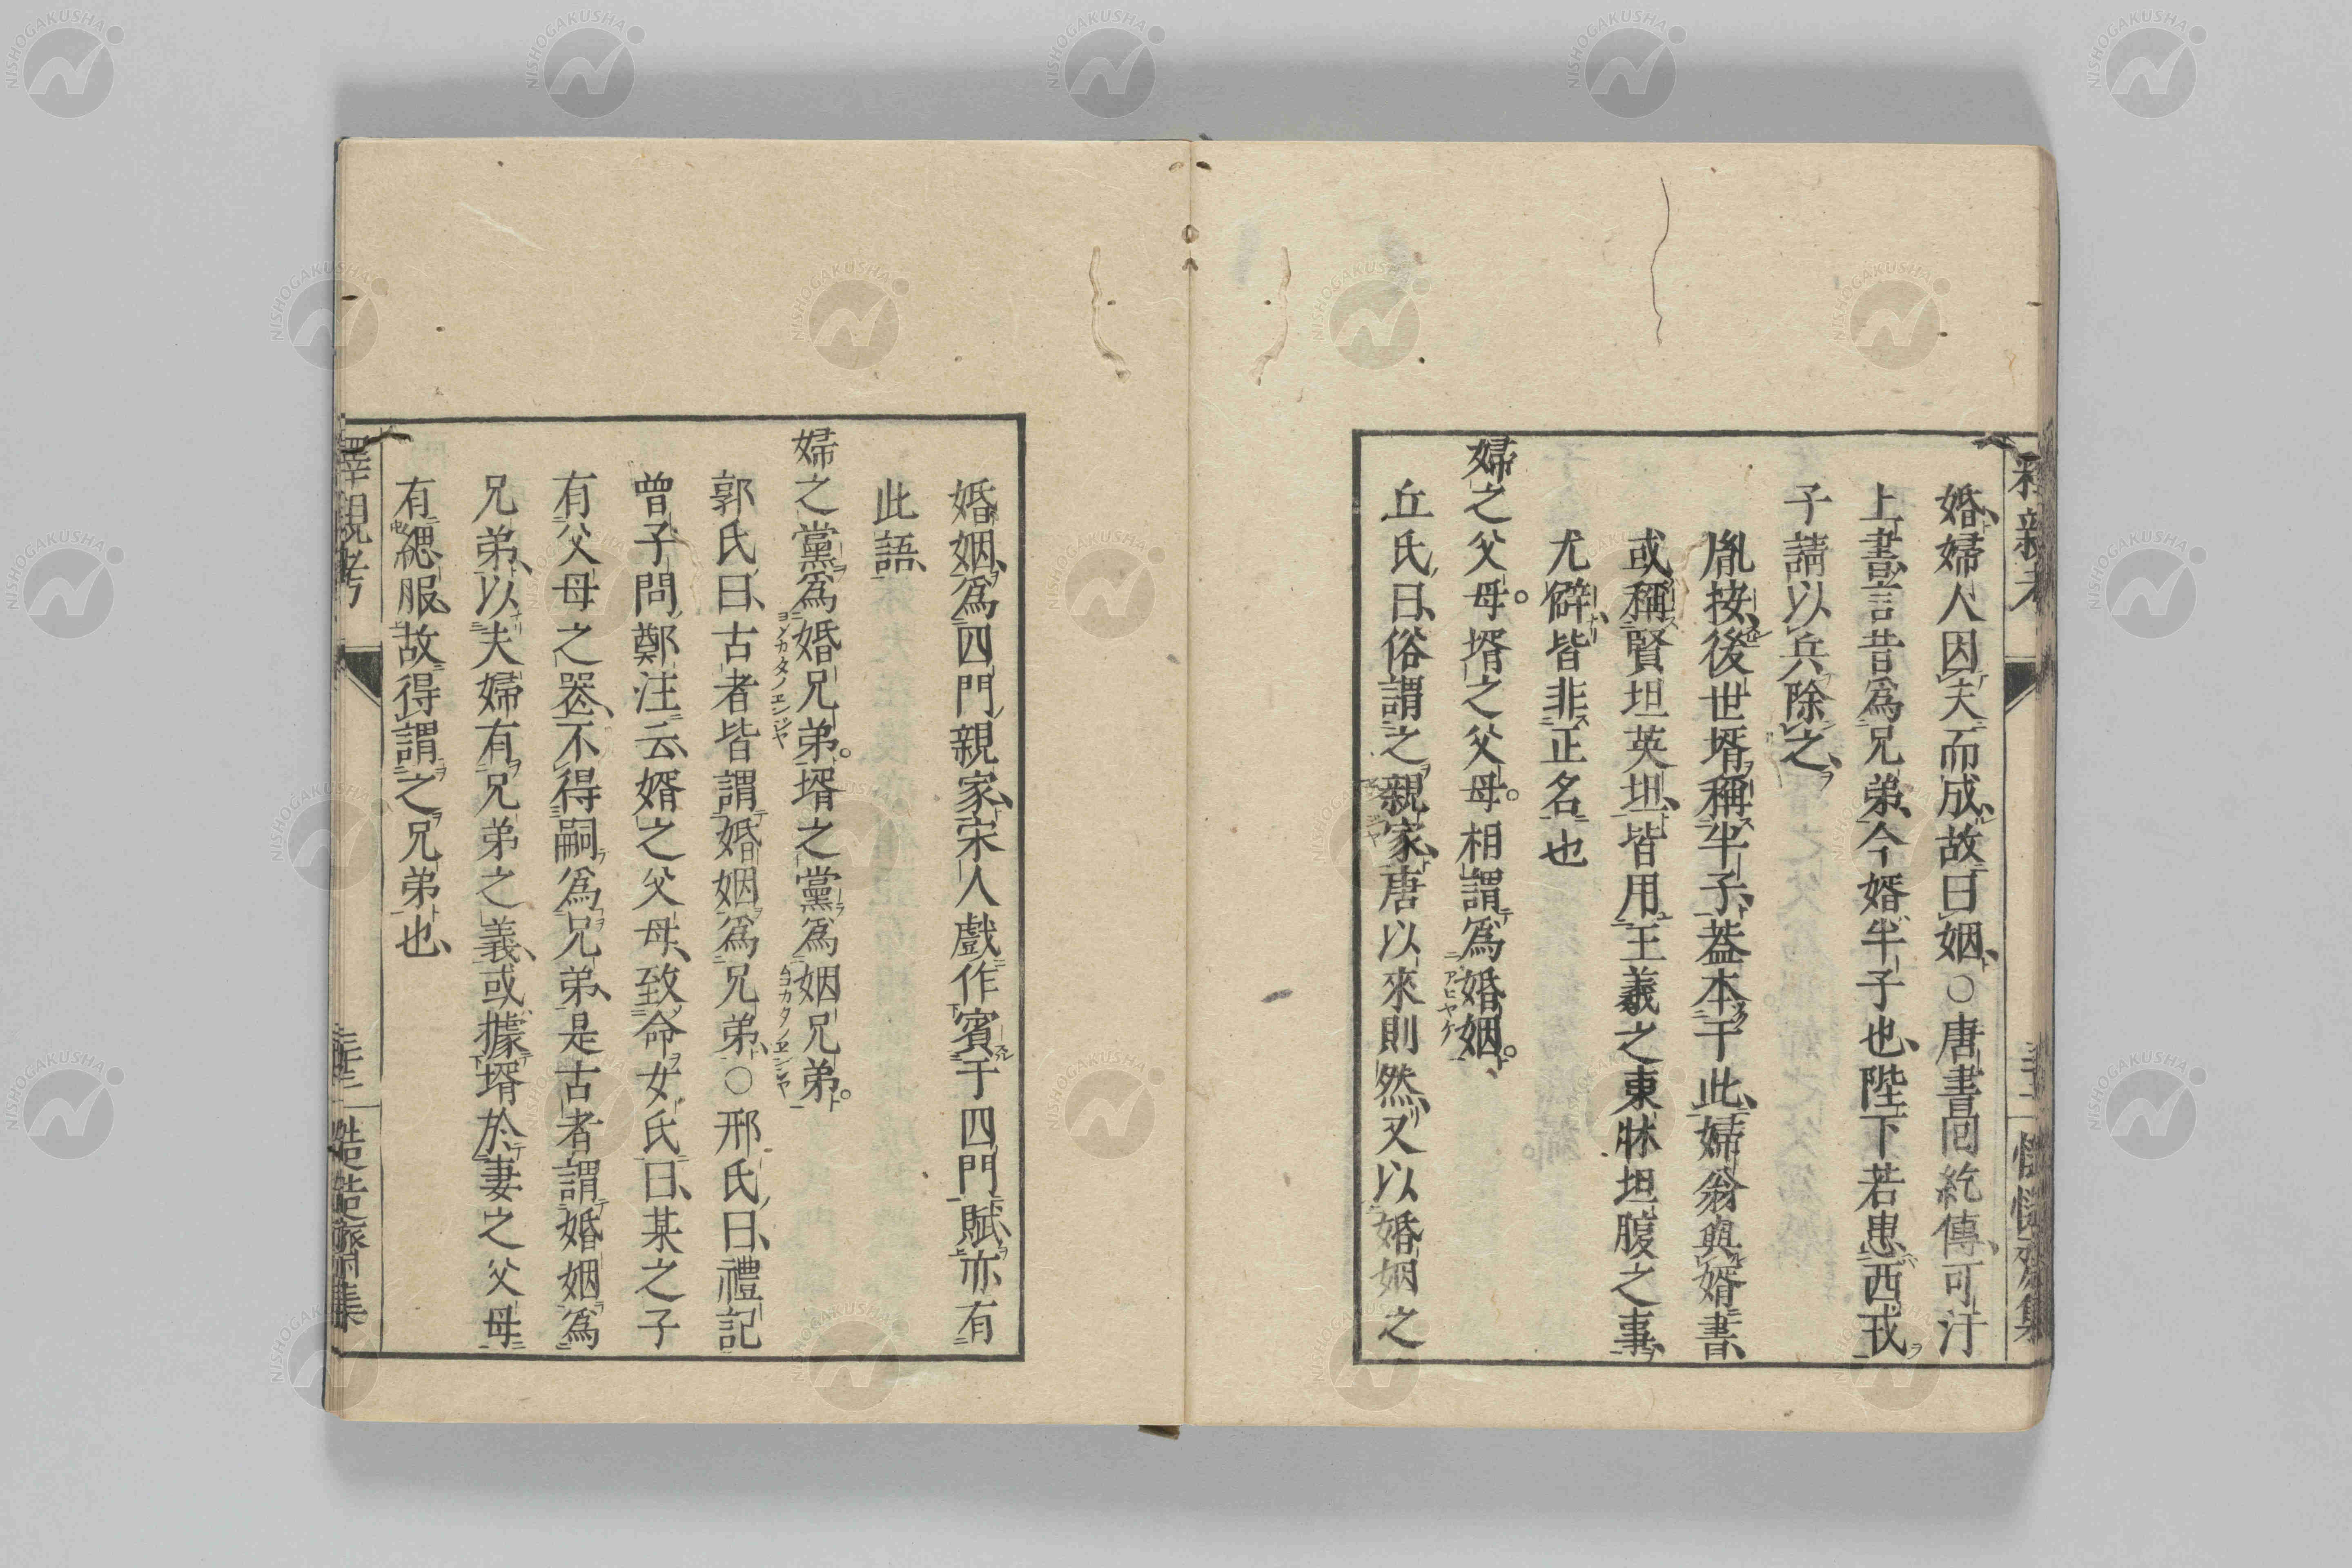 婚、婦人因夫而成、故曰姻、○唐書回紇傳、可汗
上書言昔爲兄弟、今婿半子也、陛下若患西戎
子請以兵除之、
胤按、後世壻稱半子、蓋本于此、婦翁與婿書、
或稱賢坦英坦、皆用王羲之東牀坦腹之事、
尤僻、皆非正名也
婦之父母。壻之父母。相謂爲婚姻。
丘氏曰、俗謂之親家、唐以來則然、又以婚姻之
婚姻、爲四門親家、宋人戲作賓于四門賦、亦有
此語、
婦之黨爲婚兄弟。壻之黨爲姻兄弟。
郭氏曰、古者皆謂婚姻爲兄弟、○邢氏曰、禮記
曾子問、鄭注云、婿之父母、致命女氏曰、某之子
有父母之喪、不得嗣爲兄弟、是古者謂婚姻爲
兄弟、以夫婦有兄弟之義、或據壻於妻之父母
有緦服、故得謂之兄弟也、
釋親考